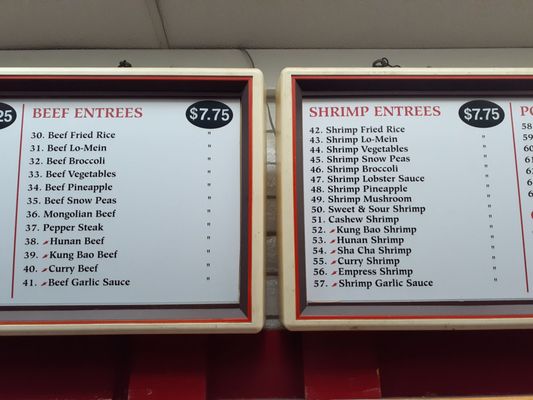 25
BEEF ENTREES $7.75
30. Beef Fried Rice "
31. Beef Lo-Mein "
32. Beef Broccoli "
33. Beef Vegetables "
34. Beef Pineapple "
35. Beef Snow Peas "
36. Mongolian Beef "
37. Pepper Steak "
38. Hunan Beef "
39. Kung Bao Beef "
40. Curry Beef "
41. Beef Garlic Sauce "
SHRIMP ENTREES $7.75
42. Shrimp Fried Rice "
43. Shrimp Lo-Mein "
44. Shrimp Vegetables "
45. Shrimp Snow Peas "
46. Shrimp Broccoli "
47. Shrimp Lobster Sauce "
48. Shrimp Pineapple "
49. Shrimp Mushroom "
50. Sweet & Sour Shrimp "
51. Cashew Shrimp "
52. Kung Bao Shrimp "
53. Hunan Shrimp "
54. Sha Cha Shrimp "
55. Curry Shrimp "
56. Empress Shrimp "
57. Shrimp Garlic Sauce "
PO
58
59
60